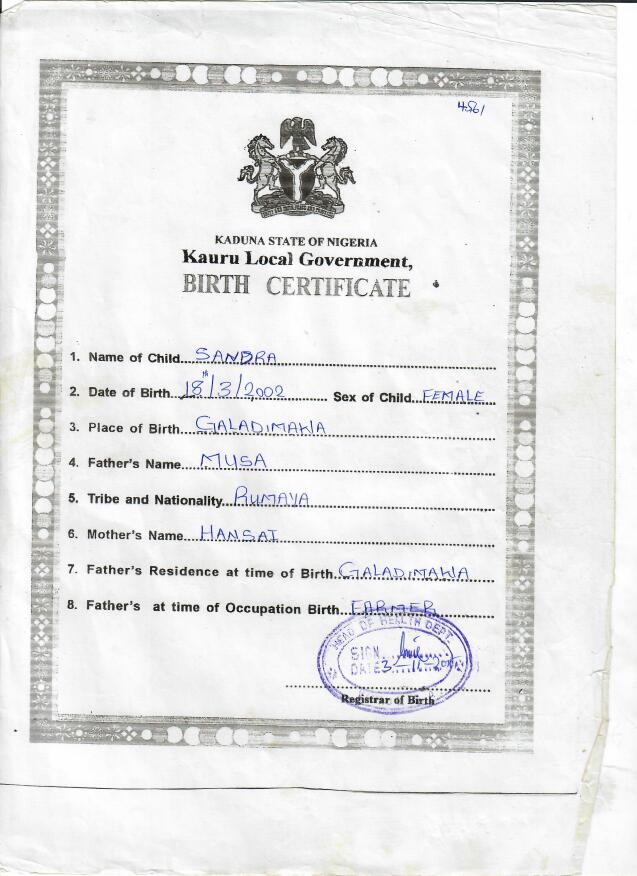 4561
KADUNA STATE OF NIGERIA
Kauru Local Government,
BIRTH CERTIFICATE
1. Name of Child...SANDRA
2. Date of Birth...18th/3/2002 Sex of Child...FEMALE
3. Place of Birth...GALADIMAWA
4. Father's Name...MUSA
5. Tribe and Nationality...RUMAYA
6. Mother's Name...HANSAI
7. Father's Residence at time of Birth...GALADIMAWA
8. Father's at time of Occupation Birth...FARMER
HEAD OF HEALTH DEPT.
SIGN
DATE 3-11-
Registrar of Birth